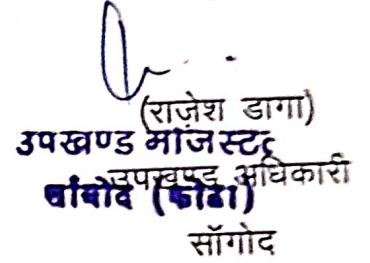 (राजेश डागा)
उपखण्ड मजिस्ट्रेट
उपखण्ड अधिकारी
सांगोद (कोटा)
सॉगोद